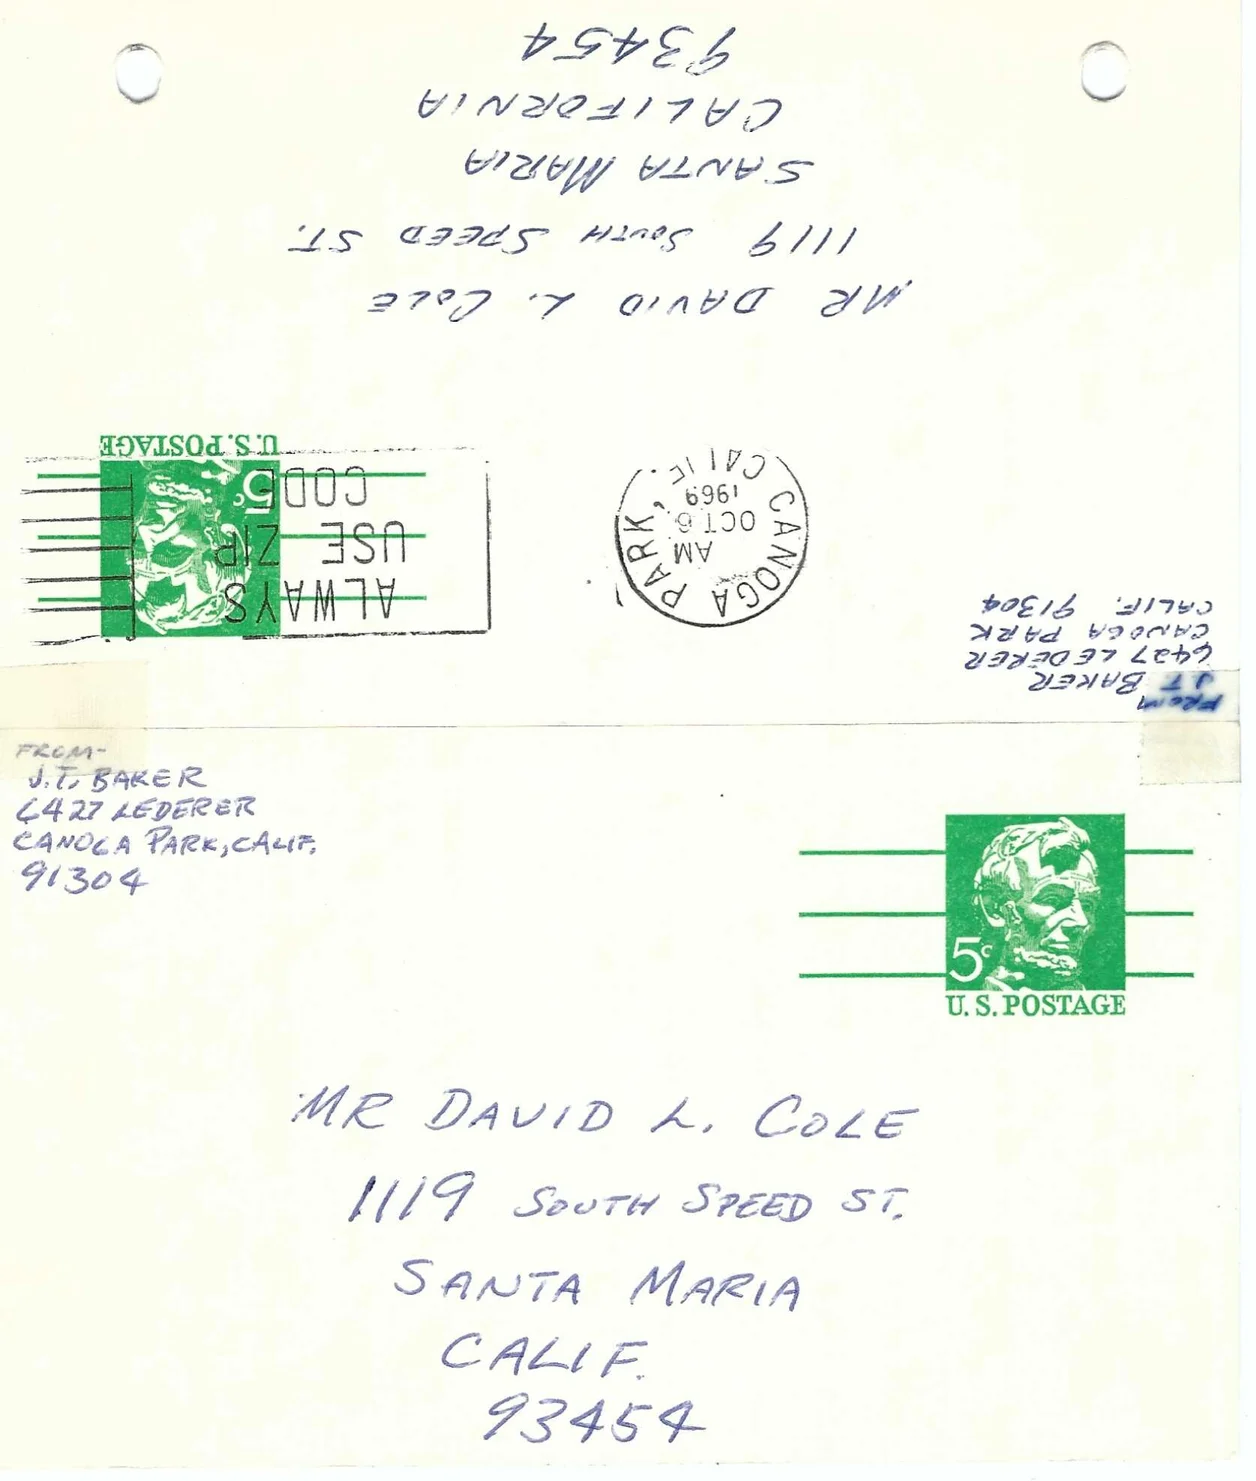 FROM
J T BAKER
6427 LEDERER
CANOGA PARK
CALIF. 91304
ALWAYS
USE ZIP
CODE
CANOGA PARK, CALIF.
AM
OCT 6
1969
5c
U.S. POSTAGE
MR DAVID L. COLE
1119 SOUTH SPEED ST.
SANTA MARIA
CALIFORNIA
93454
FROM-
J.T. BAKER
6427 LEDERER
CANOGA PARK, CALIF.
91304
5c
U.S. POSTAGE
MR DAVID L. COLE
1119 SOUTH SPEED ST.
SANTA MARIA
CALIF.
93454